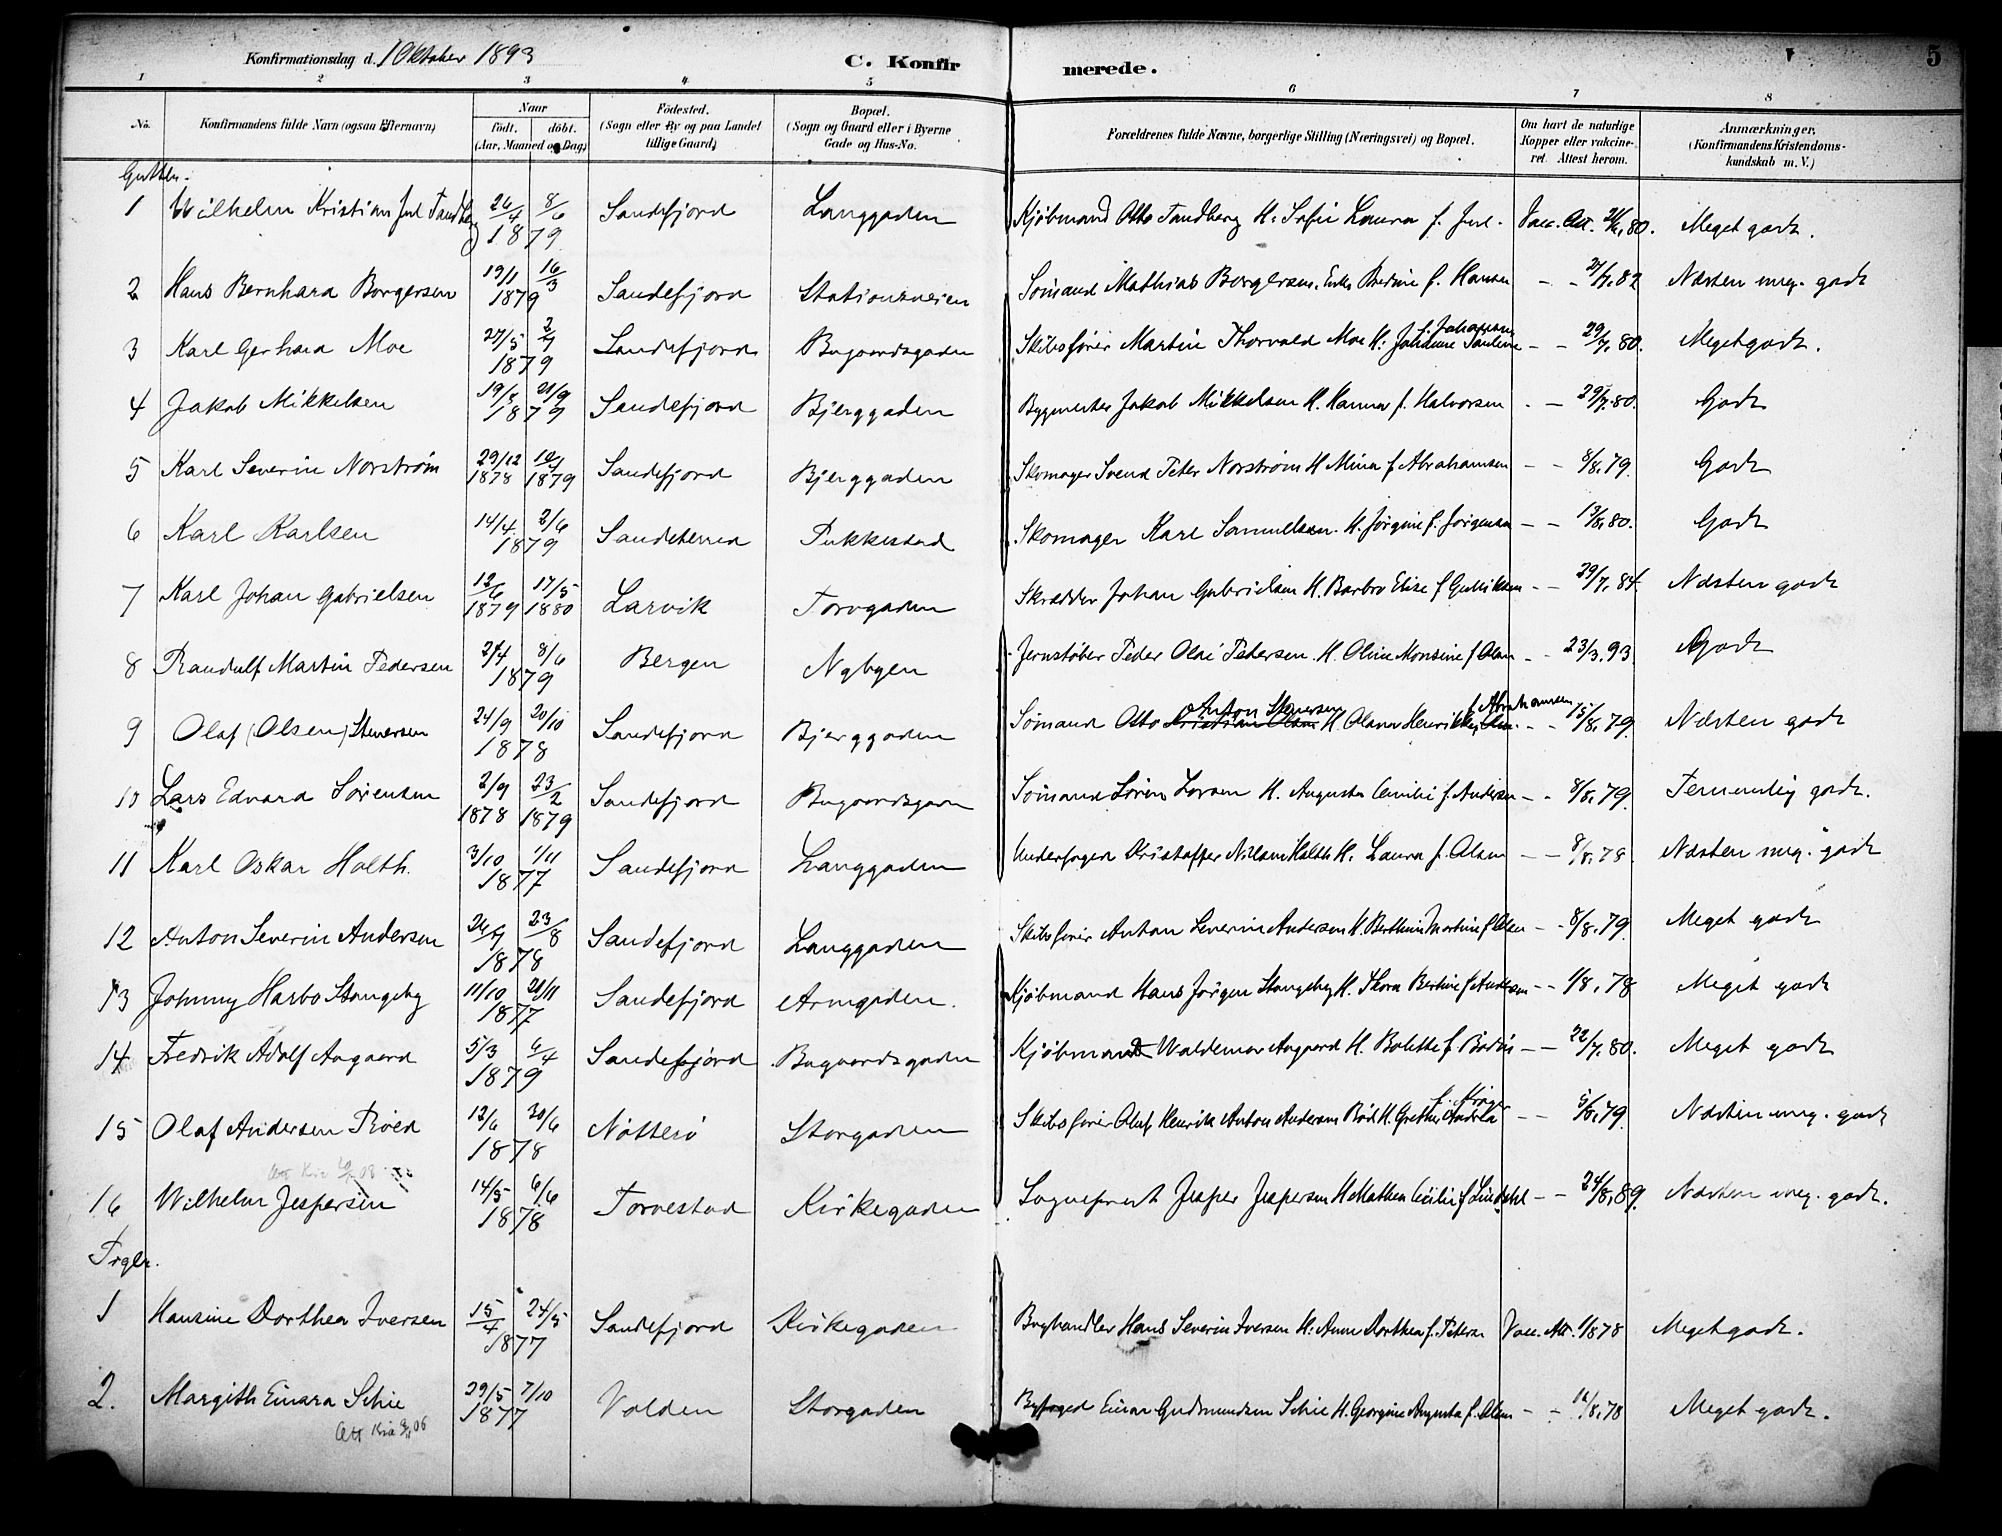 Konfirmationsdag d. 1 Oktober 1893
C. Konfirmerede.
5
1 2 3 4 5 6 7 8
No. Konfirmandens fulde Navn (ogsaa Efternavn) Naar födt. döbt. (Aar, Maaned og Dag) Födested. (Sogn eller By og paa Landet tillige Gaard) Bopæl. (Sogn og Gaard eller i Byerne Gade og Hus-No. Forældrenes fulde Navne, borgerlige Stilling (Næringsvei) og Bopæl. Om havt de naturlige Kopper eller vakcineret. Attest herom. Anmærkninger, (Konfirmandens Kristendomskundskab m. V.)
Gutter.
1 Wilhelm Kristian Juul Tandberg 26/4 8/6 1879 Sandefjord Langgaden Kjöbmand Otto Tandberg H: Sofie Laura f. Juul. Vacc. Att. 80. Meget godt.
2 Hans Bernhard Borgersen 19/1 16/3 1879 Sandefjord Stationsveien Sömand Mathias Borgersen. Enke f. Hansen - - 27/7.82 Næsten meg. godt
3 Karl Gerhard Moe 27/5 2/7 1879 Sandefjord Bugaardsgaden Skibsförer Martin Thorvald Moe H: Johanne Pauline f. Johannesen - - 29/7.80. Meget godt.
4 Jakob Mikkelsen 19/8 21/9 1879 Sandefjord Bjerggaden Bygmester Jakob Mikkelsen H. Hanna f. Halvorsen - - 29/7.80. Godt
5 Karl Severin Norström 29/12 1878 1879 Sandefjord Bjerggaden Skomager Svend Peter Norström H Mina f Abrahamsen - - 8/8.79. Godt
6 Karl Karlsen 14/4 2/6 1879 Sandeherred Pukkestad Skomager Karl Samuelsen. H. Jörgine f. Jörgensen - - 13/8.80. Godt
7 Karl Johan Gabrielsen 12/6 1879 17/5 1880 Larvik Torvgaden Skrædder Johan Gabrielsen H. Barbro Elise f Gulliksen - - 29/7.84. Næsten godt
8 Randulf Martin Pedersen 2/4 8/6 1879 Bergen Nybyen Jernstöber Peder Olai Pedersen. H. Oline Monsine f Olsen - - 23/3.93. Godt
9 Olaf (Olsen) Stenersen 24/9 20/10 1878 Sandefjord Bjerggaden Sömand Otto Anton Stenersen Kristian Olsen H. Olava Henrikke f Abrahamsen Olsen. - - 15/8.79. Næsten godt
10 Lars Edvard Sörensen 2/9 1878 23/2 1879 Sandefjord Bugaardsgaden Sömand Sören Larsen H. Augusta Emilie f. Andersen - - 8/8.79. Temmelig godt.
11 Karl Oskar Holth. 3/10 1/11 1877 Sandefjord Langgaden Underfoged Kristoffer Holth H. Laura f. Olsen - - 8/8.78 Næsten meg. godt
12 Anton Severin Andersen 23/8 1878 Sandefjord Langgaden Skibsförer Anton Severin Andersen H. Berthine Martine f Olsen - - 8/8.79. Meget godt
13 Johnny Harbo Stangeby 11/10 21/11 1877 Sandefjord Arngaden. Kjöbmand Hans Jörgen Stangeby H. Thora Bertine f Andersen - - 1/8.78 Meget godt
14 Fredrik Adolf Aagaard 5/3 6/4 1879 Sandefjord Bugaardsgaden Kjöbmand Waldemar Aagaard H. Bolette f. - - 22/7.80. Meget godt
15 Olaf Andersen Röed 12/6 30/6 1878 Nötterö Storgaden Skibsförer Oluf Henrik Anton Andersen Röd H. Grethe Andrea f. - - 5/8.79. Næsten meg. godt
16 Wilhelm Jespersen 14/5 6/6 1878 Torvestad Kirkegaden Sogneprest Jesper Jespersen H Mathea Cecilie f Lindahl - - 24/8.89. Næsten meg. godt.
Piger.
1 Hansine Dorthea Iversen 15/4 24/5 1877 Sandefjord Kirkegaden Boghandler Hans Severin Iversen H. Anne Dorthea f. Peters. Vacc. Att. 1/8 78 Meget godt.
2. Margith Einara Schie 29/5 7/10 1877 Volden Storgaden Byfoged Einar Gudmundsen Schie H. Georgine Augusta f. Olsen - - 78 Meget godt.